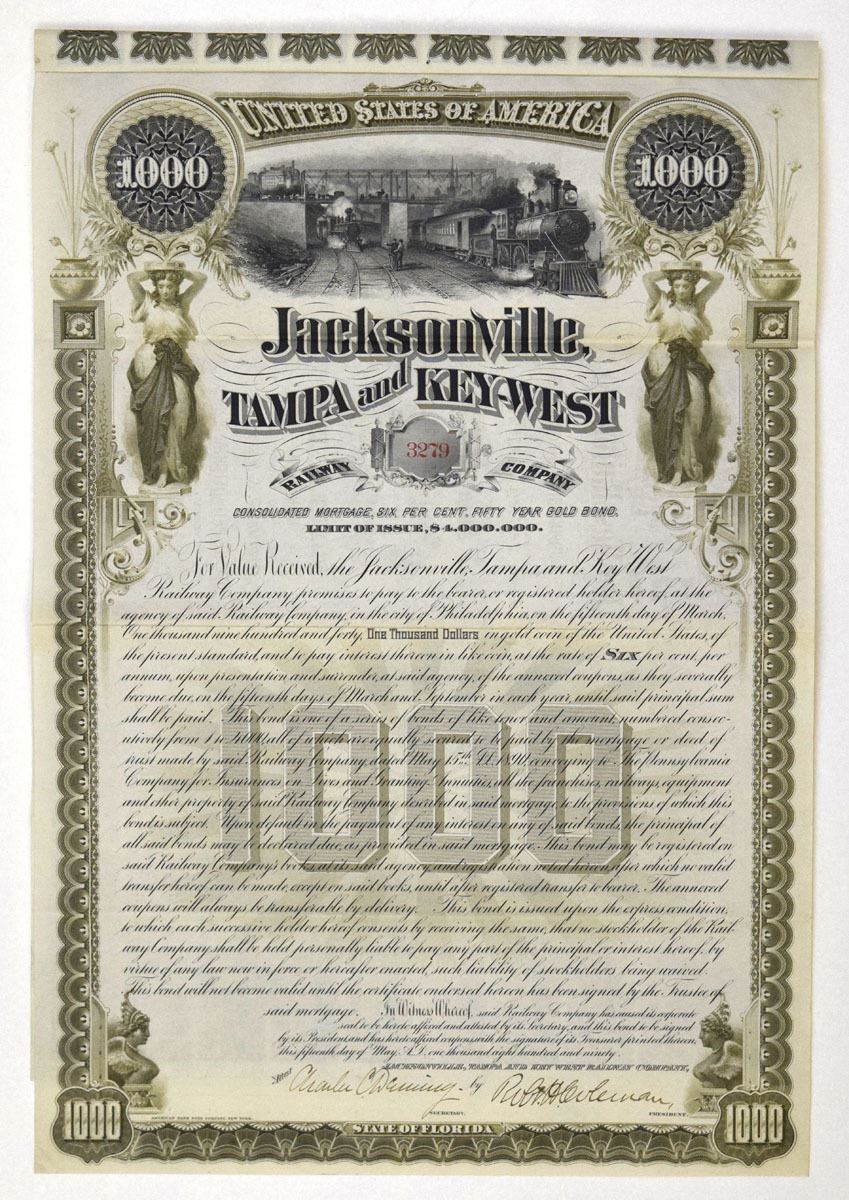 UNITED STATES OF AMERICA
1000
1000
Jacksonville,
TAMPA and KEY-WEST
3279
RAILWAY COMPANY
CONSOLIDATED MORTGAGE, SIX, PER CENT, FIFTY YEAR GOLD BOND,
LIMIT OF ISSUE, $4,000,000.
For Value Received, the Jacksonville, Tampa and Key West
Railway Company promises to pay to the bearer, or registered holder hereof, at the
agency of said Railway Company, in the city of Philadelphia, on the fifteenth day of March.
One thousand nine hundred and forty, One Thousand Dollars in gold coin of the United States, of
the present standard, and to pay interest thereon in like coin, at the rate of SIX per cent. per
annum, upon presentation and surrender, at said agency, of the annexed coupons, as they severally
become due, on the fifteenth days of March and September in each year, until said principal sum
shall be paid. This bond is one of a series of bonds of like tenor and amount, numbered consec-
utively from 1 to 4000, all of which are equally secured to be paid by the mortgage or deed of
trust made by said Railway Company, dated May 15th A.D. 1890, conveying to The Pennsylvania
Company for Insurances on Lives and Granting Annuities, all the franchises, railways, equipment
and other property of said Railway Company described in said mortgage, to the provisions of which this
bond is subject. Upon default in the payment of any interest on any of said bonds, the principal of
all said bonds may be declared due, as provided in said mortgage. This bond may be registered on
said Railway Company's books, at its said agency, and registration noted hereon, after which no valid
transfer hereof can be made, except on said books, until after registered transfer to bearer. The annexed
coupons will always be transferable by delivery. This bond is issued upon the express condition,
to which each successive holder hereof consents by receiving the same, that no stockholder of the Rail-
way Company shall be held personally liable to pay any part of the principal or interest hereof, by
virtue of any law now in force or hereafter enacted, such liability of stockholders being waived.
This bond will not become valid until the certificate endorsed hereon has been signed by the Trustee of
said mortgage. In Witness Whereof, said Railway Company has caused its corporate
seal to be hereto affixed and attested by its Secretary, and this bond to be signed
by its President, and has hereto affixed coupons with the signature of its Treasurer printed thereon,
this fifteenth day of May, A.D. one thousand eight hundred and ninety.
JACKSONVILLE, TAMPA AND KEY WEST RAILWAY COMPANY,
Attest Charles C Deming by Robt H Coleman,
SECRETARY. PRESIDENT.
AMERICAN BANK NOTE COMPANY, NEW YORK.
1000
STATE OF FLORIDA
1000
1000